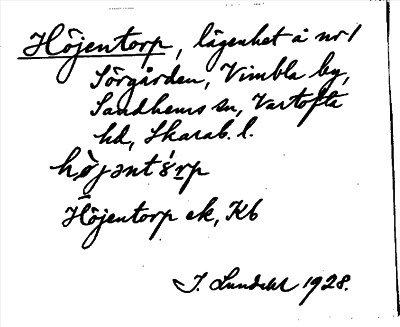 Höjentorp, lägenhet å nr 1
Sörgården, Vimbla by,
Sandhems sn, Vartofta
hd, Skarab. l.
Höjentorp ek, Kb
1928.